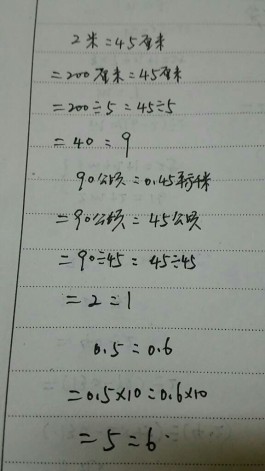 2米:45厘米
=200厘米:45厘米
=200÷5:45÷5
=40:9
90公顷:0.45平方千米
=90公顷:45公顷
=90÷45:45÷45
=2:1
0.5:0.6
=0.5×10:0.6×10
=5:6